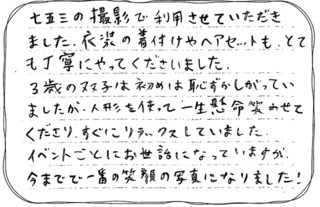 七五三の撮影で利用させていただき
ました。衣装の着付けやヘアセットも、とて
も丁寧にやってくださいました。
3歳の双子は初めは恥ずかしがってい
ましたが、人形を使って一生懸命笑わせて
くださり、すぐにリラックスしていました。
イベントごとにお世話になっていますが、
今までで一番の笑顔の写真になりました!